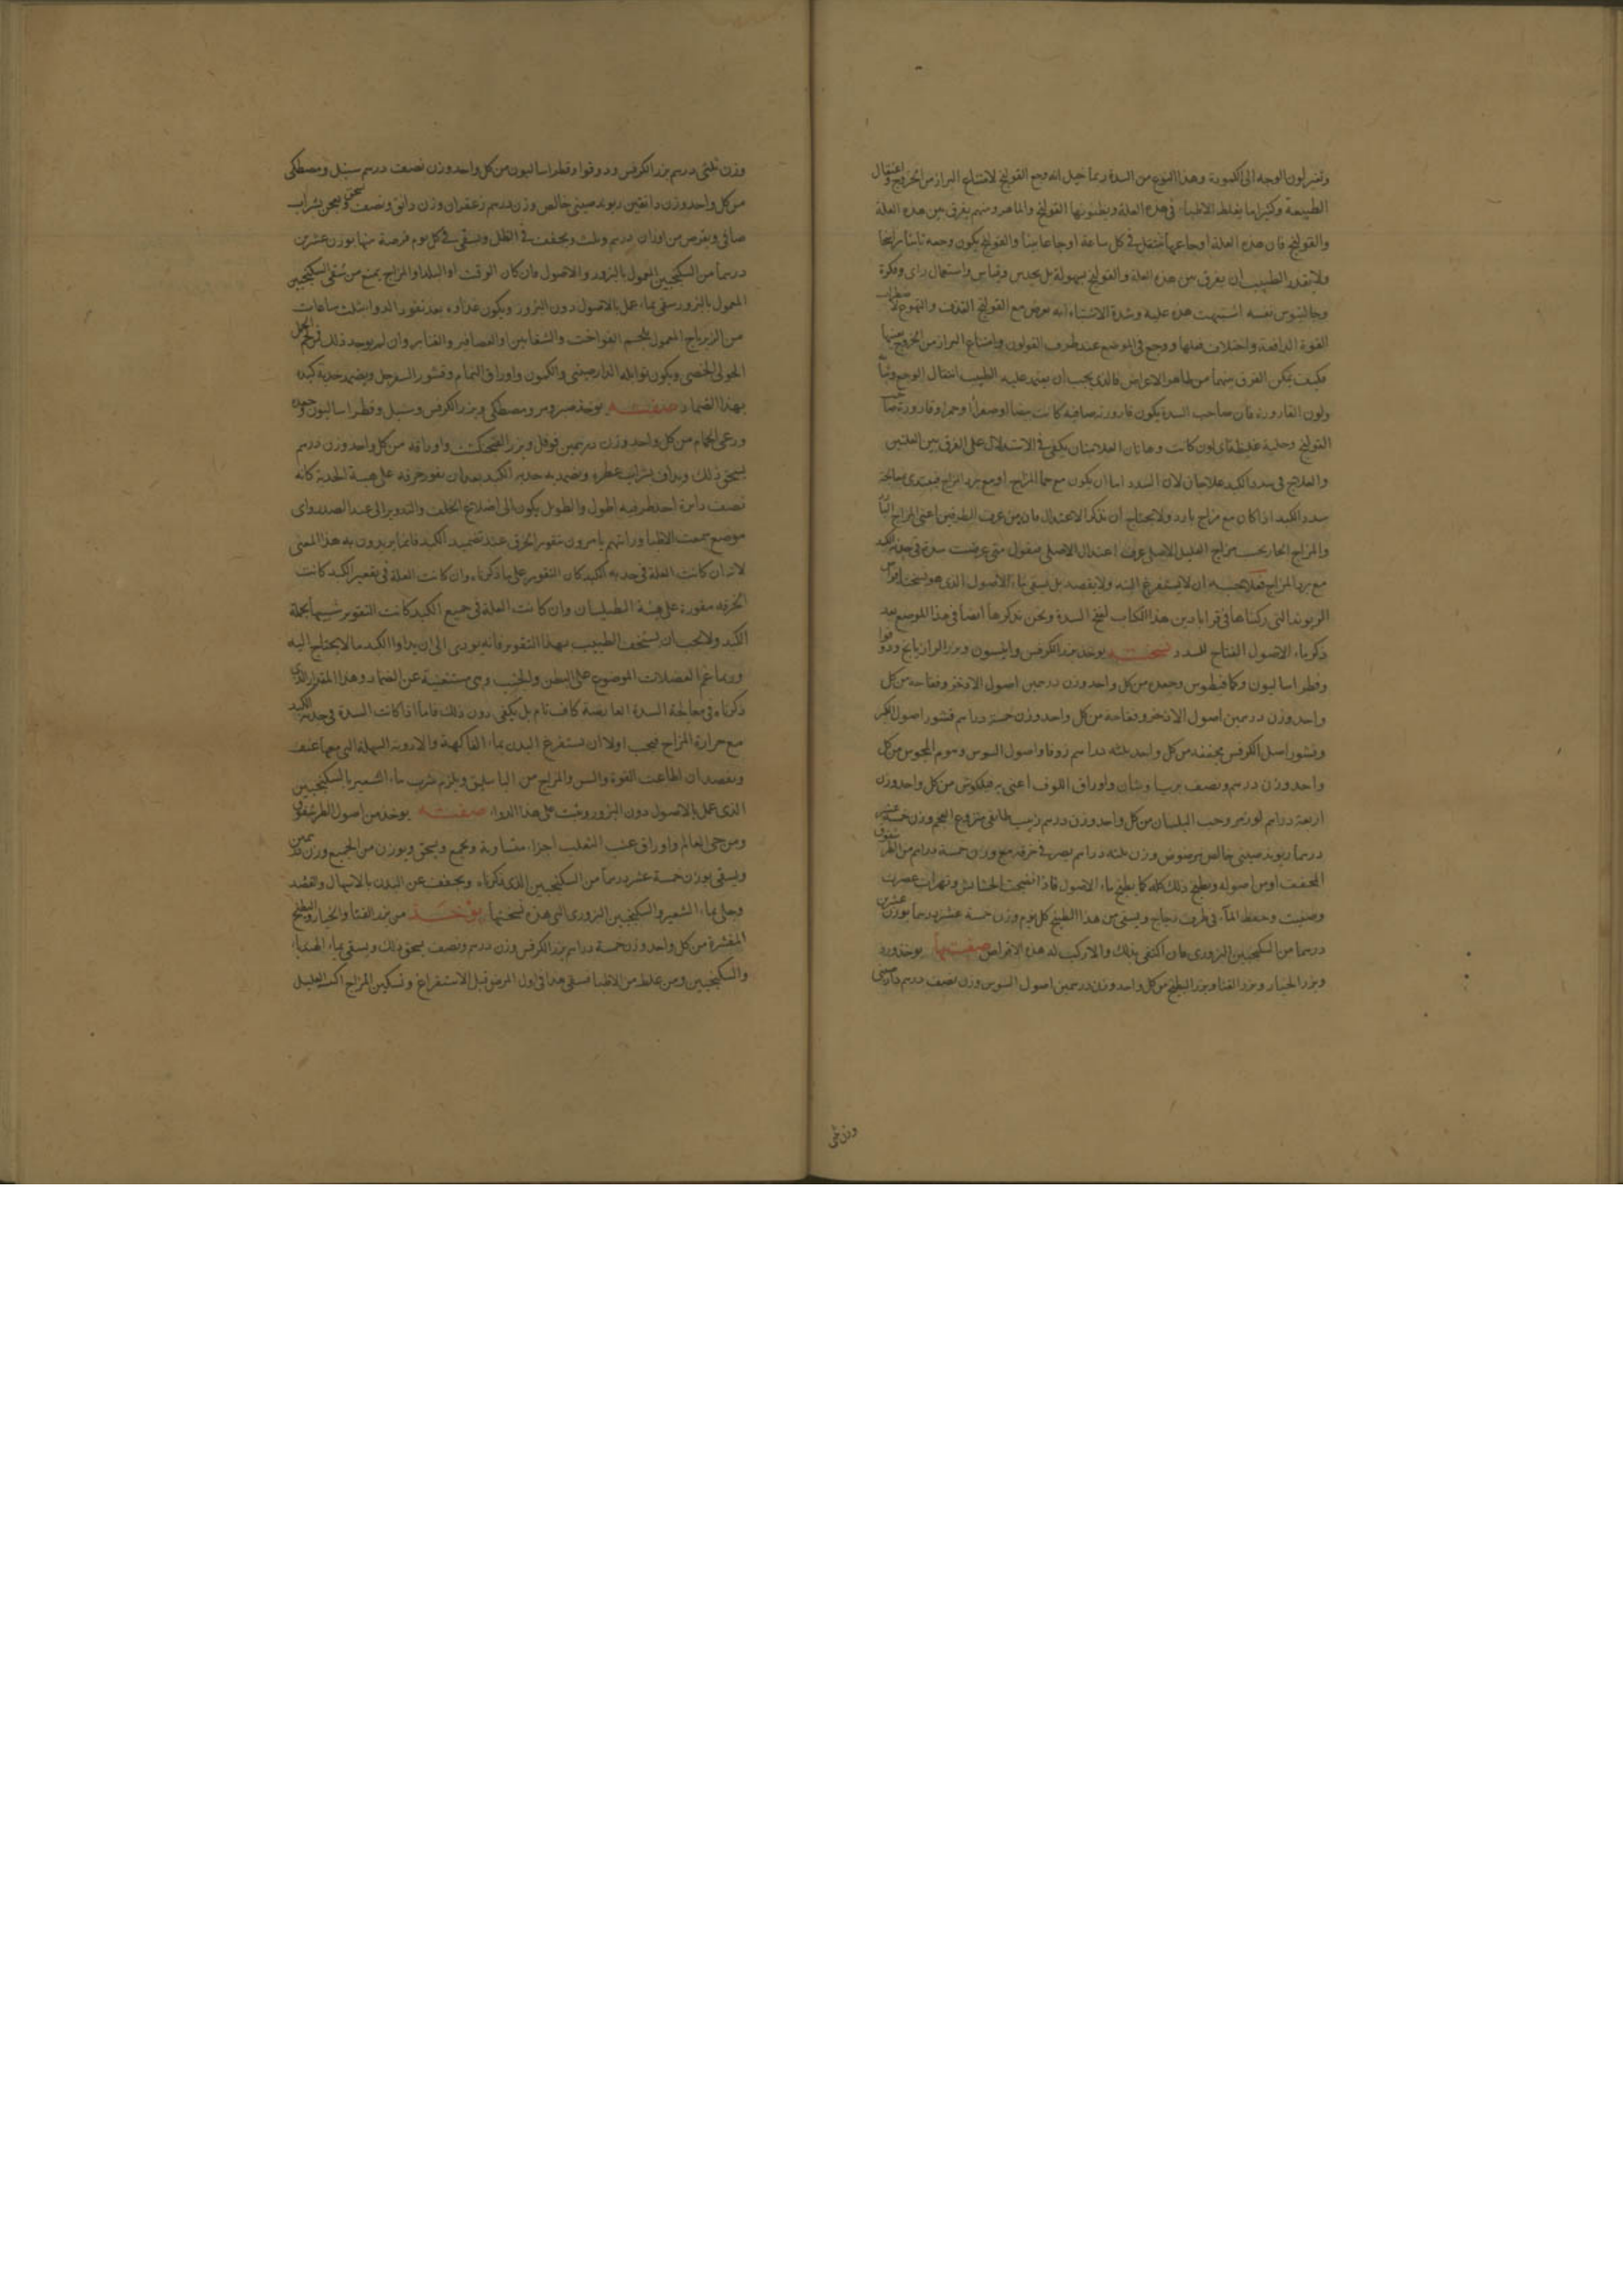 وتغير لون الوجه الى الكمودة وهذا النوع من السدة ربما خيل انه وجع القولنج لامتناع البراز من الخروج واعتقال
الطبيعة وكثيرا ما يغلط الاطباء في هذه العلة ويظنونها القولنج والماهر منهم يفرق بين هذه العلة
والقولنج فان هذه العلة اوجاعها تنتقل في كل ساعة والقولنج يكون وجعه ثابتا
ولا يقدر الطبيب ان يفرق بين هذه العلة والقولنج بسهولة بل بحدس وقياس واستعمال راى وفكرة
وجالينوس نفسه اشتبهت هذه عليه وشدة الاشتباه انه يعرض مع القولنج القذف والتهوع
القوة الدافعة واختلاف فعلها ووجع في الموضع عند طرف القولون وامتناع البراز من الخروج
فكيف يمكن الفرق بينهما من ظاهر الاعراض فالذي يجب ان يعتمد عليه الطبيب انتقال الوجع
ولون القارورة فان صاحب السدة يكون قارورته صافية كانت بيضا او صفرا او حمرا وقارورة صاحب
القولنج غليظة اى لون كانت وهاتان العلامتان يكفي في الاستدلال على الفرق بين العلتين
والعلاج في سدد الكبد علاجان لان السدد اما ان يكون مع حما المزاج او مع برد المزاج فنبتدى بمعالجة
سدد الكبد اذا كان مع مزاج بارد ولا يحتاج ان نذكر الاعتدال فان من عرف الطرفين اعنى المزاج البارد
والمزاج الحار بحسب مزاج العليل الاصلى عرف اعتدال الاصلى فنقول متى عرضت سدة في حدبة الكبد
مع برد المزاج ان لا يستفرغ البته ولا يفصد بل يسقى ماء الاصول الذى هو نسخته
الريوند التى ذكرناها في قرابادين هذا الكتاب لفتح السدة ونحن نذكرها ايضا في هذا الموضع بعد
ذكر ماء الاصول الفتاح للسدد نسخته يوخذ بزر الكرفس وانيسون وبزر الرازيانج ودوقوا
وفطراساليون وكمافيطوس وجعده من كل واحد وزن درهمين اصول الاذخر وفقاحه من كل
واحد وزن درهمين اصول الاذخر وفقاحه من كل واحد وزن خمسة دراهم قشور اصول الكبر
وقشور اصل الكرفس مجففه من كل واحد ثلثه دراهم زوفا واصول السوس من كل
واحد وزن درهم ونصف واوراق اللوف اعنى من كل واحد وزن
اربعة دراهم لوز مر وحب البلسان من كل واحد وزن درهم زبيب طائفى منزوع العجم وزن خمسة عشر
درهما ريوند صينى خالص مرضوض وزن ثلثه دراهم يصر في خرقه مع وزن خمسة دراهم من
المجفف او من اصوله ويطبخ ذلك كله كما يطبخ ماء الاصول فاذا انضجت الحشايش
وصفيت وحفظ الماء في ظرف زجاج ويسقى من هذا الطبيخ كل يوم وزن خمسة عشر درهما بوزن عشرين
درهما من السكنجبين البزورى فان اكتفى بذلك والا ركب له هذه الاقراص صفتها يوخذ ورد
وبزر الخيار وبزر القثا وبزر البطيخ من كل واحد وزن درهمين اصول السوس وزن نصف درهم دارصينى
وزن ثلثى
وزن ثلثى درهم بزر الكرفس ودوقوا وفطراساليون من كل واحد وزن نصف درهم سنبل ومصطكى
من كل واحد وزن دانقين ريوند صينى خالص وزن درهم زعفران وزن دانق ونصف يسحق ويعجن بشراب
صافى ويقرص من اوزان درهم وثلث ويجفف في الظل ويسقى في كل يوم قرصة منها بوزن عشرين
درهما من السكنجبين المعمول بالبزور والاصول فان كان الوقت او البلد او المزاج يمنع من سقى السكنجبين
المعمول بالبزور سقى بما عمل بالاصول دون البزور ويكون غذاوه بعد نفوذ الدوا بثلث ساعات
من الزيرباج المعمول بلحم الفواخت والشفانين او العصافير والقنابر وان لم يوجد ذلك فمن لحم الحمل
الحولى الخصى ويكون توابله الدارصينى والكمون واوراق النمام وقشور السفرجل ويضمد حدبة كبده
بهذا الضماد صفته يوخذ صبر ومر ومصطكى وبزر الكرفس وسنبل وفطراساليون وجعده
ورعى الحمام من كل واحد وزن درهمين فوفل وبزر الفنجنكشت واوراقه من كل واحد وزن درهم
يسحق ذلك ويداف بشراب عطره ويضمد به حدبة الكبد بعد ان يقور خرقه على هيئة الحدبة كانه
نصف دائرة احد طرفيه اطول والطويل يكون الى اضلاع الخلف والتدوير الى عند الصدر واى
موضع سمعت الاطبا ورايتهم يامرون بتقوير الخرق عند تضميد الكبد فانما يريدون به هذا المعنى
لانه ان كانت العلة في حدبة الكبد كان التقوير على ما ذكرناه وان كانت العلة في تقعير الكبد كانت
الخرقه مقورة على هيئة الطيلسان وان كانت العلة في جميع الكبد كانت التقوير شبيها بجملة
الكبد ولا يجب ان يستخف الطبيب بهذا التقوير فانه يودى الى ان يداوا الكبد مالا يحتاج اليه
وربما غم العضلات الموضوع على البطن والجنب وهى مستغنية عن الضماد وهذا المقدار الذى
ذكرناه في معالجة السدة العارضة كاف تام بل يكفى دون ذلك فاما اذا كانت السدة في حدبة الكبد
مع حرارة المزاج فيجب اولا ان يستفرغ البدن بماء الفاكهة والادوية السهلة التى معها عنف
ويفصد ان اطاعت القوة والسن والمزاج من الباسليق ويلزم شرب ماء الشعير بالسكنجبين
الذى عمل بالاصول دون البزور ويثبت على هذا الدواء صفته يوخذ من اصول الطرشقوق
ومن حى العالم واوراق عنب الثعلب اجزاء متساوية ويجمع ويسحق ويوزن من الجميع وزن درهمين
ويسقى بوزن خمسة عشر درهما من السكنجبين الذى ذكرناه ويخفف عن البدن بالاسهال والفصد
وجلى بماء الشعير والسكنجبين البزورى التى هذه نسختها يوخذ من بزر القثا والخيار والبطيخ
المقشرة من كل واحد وزن خمسة دراهم بزر الكرفس وزن درهم ونصف يسحق ذلك ويسقى بماء الهندباء
والسكنجبين ومن غلط من الاطبا فسقى هذا في اول المرض قبل الاستفراغ وتسكين المزاج اكسب العليل